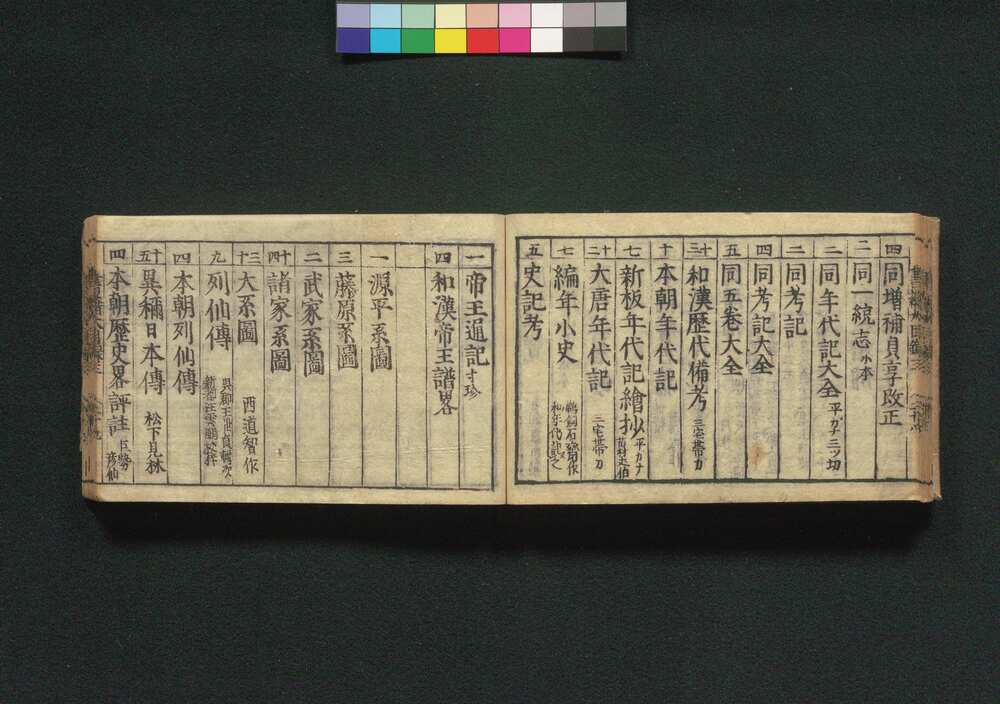 四 同増補貞享改正
二 同一統志 小本
二 同年代記大全 平カナ 三ツ切
二 同考記
四 同考記大全
五 同五巻大全
十三 和漢歴代備考 三宅帯刀
十 本朝年代記
七 新板年代記繪抄 平カナ
十二 大唐年代記 三宅帯刀
七 編年小史 鵜飼石齋作
五 史記考
一 帝王通記 寸珍
四 和漢帝王譜畧
一 源平系圖
三 藤原系圖
二 武家系圖
十四 諸家系圖
十三 大系圖 西道智作
九 列仙傳 呉郡王世貞輯次
四 本朝列仙傳
十五 異稱日本傳 松下見林
四 本朝歴史畧評註 巨勢彦仙